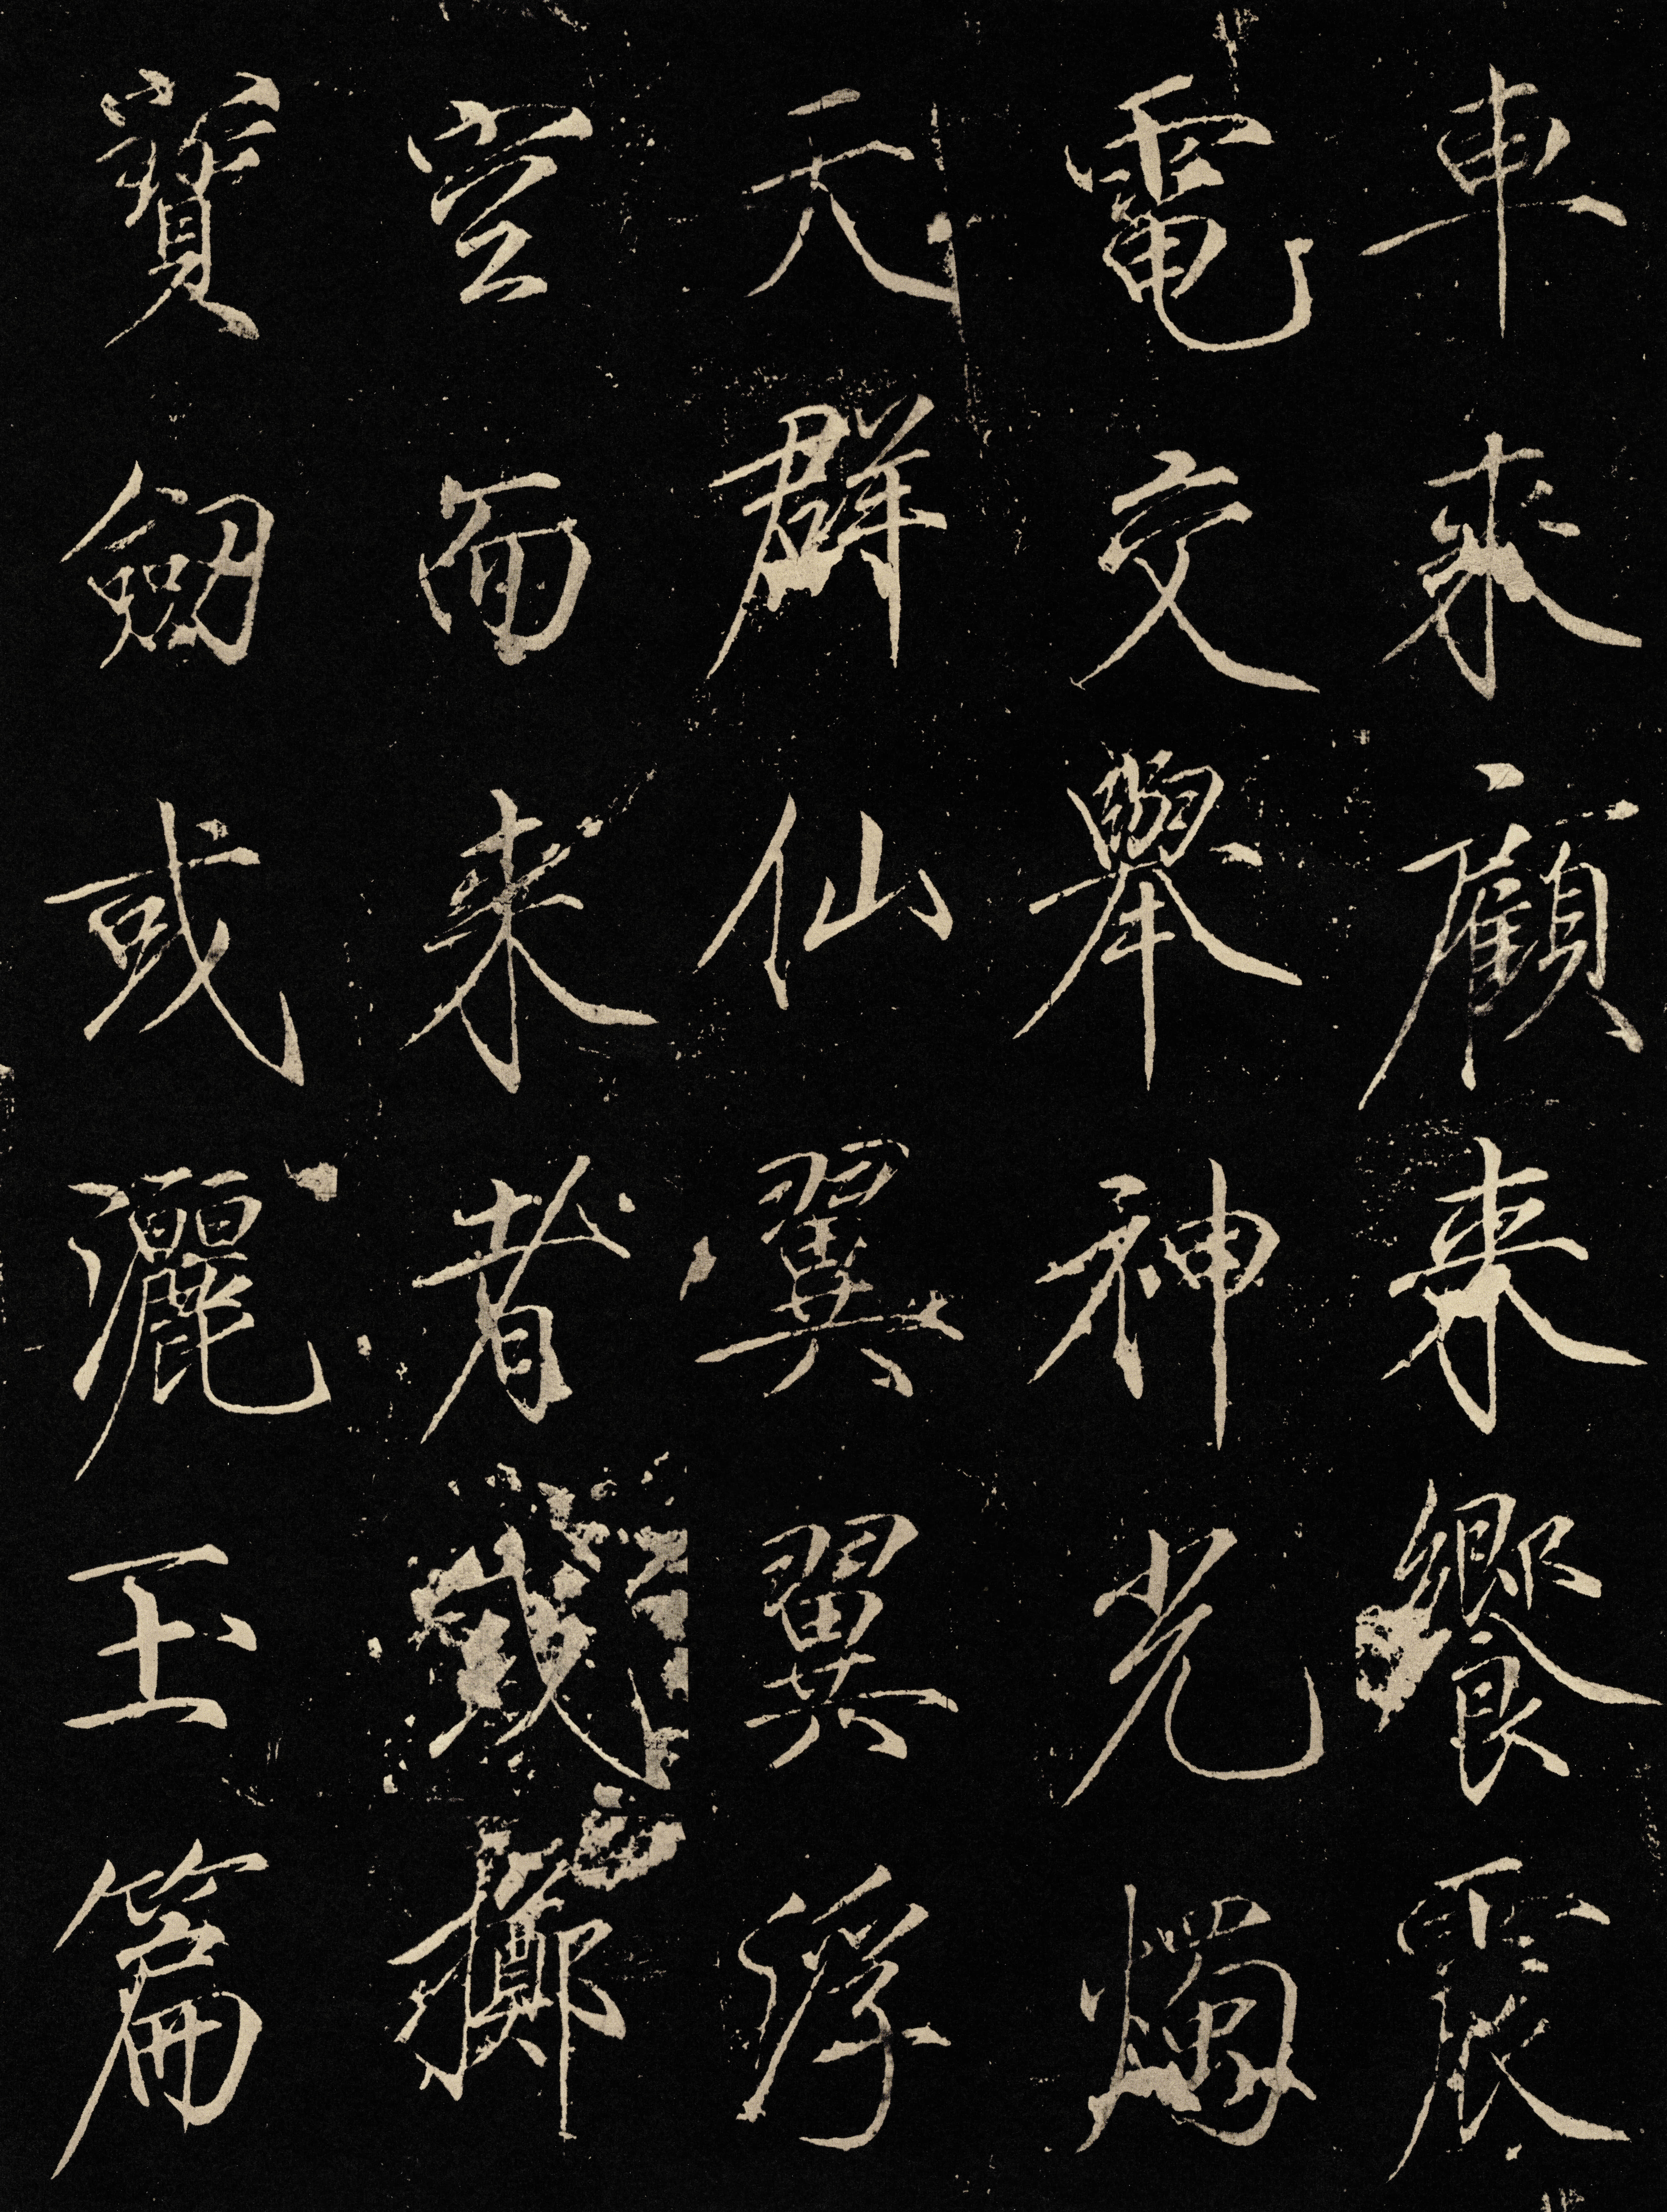 車来顧来饗震
電交舉神光燭
天群仙翼翼浮
空而来者或擲
寶劔或灑玉篇